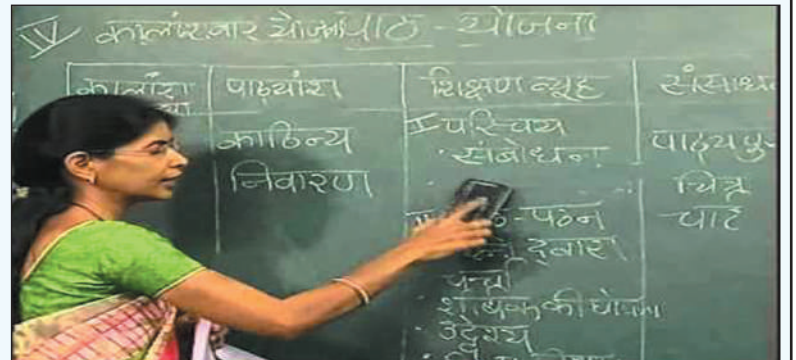 IV कालांशवार योजना पाठ - योजना
कालांश पाठ्यांश शिक्षण व्यूह
काठिन्य
निवारण
I परिचय
· संबोधन
पठन
द्वारा
चर्चा
· शीर्षक की घोषणा
· उद्देश्य
पाठ्य पु
चित्र
चार्ट